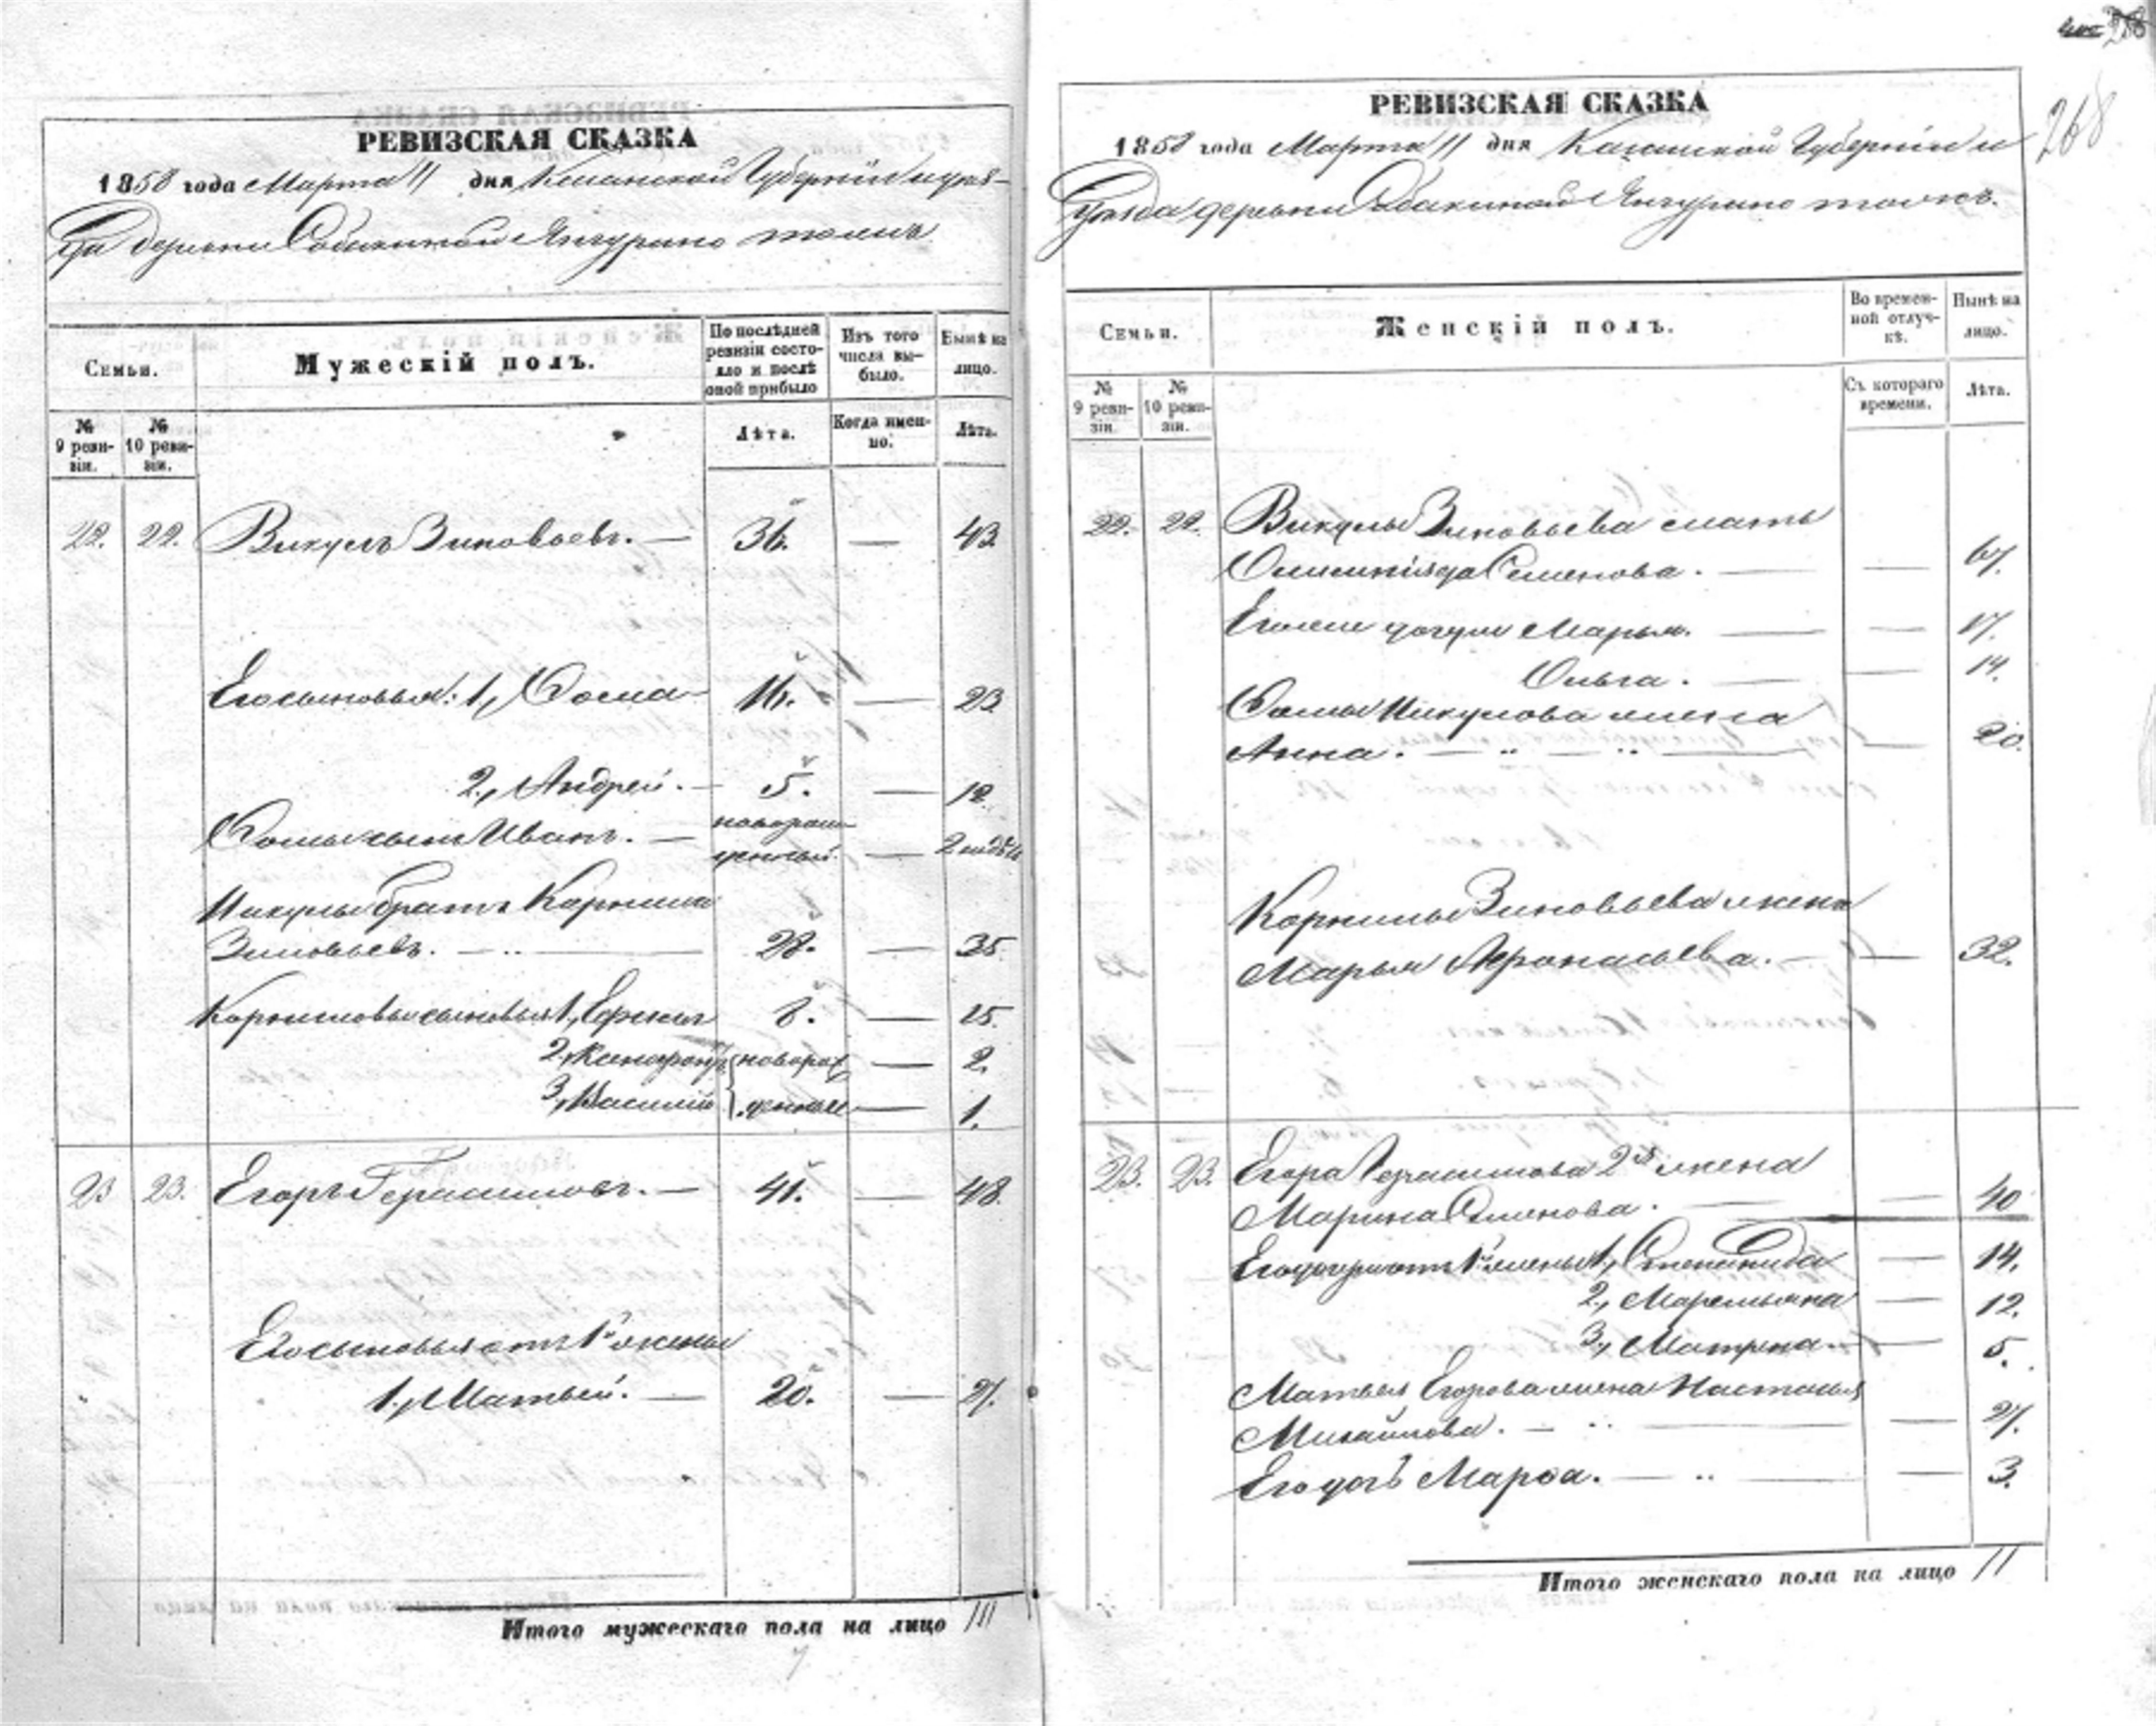 РЕВИЗСКАЯ СКАЗКА
1858 года Марта 11 дня Казанской Губерніи и уѣз-
да деревни Собакиной Янгурино тожъ
Семьи.
Мужескій полъ.
По послѣдней ревизіи состо-яло и послѣ оной прибыло
Изъ того числа вы-было.
Нынѣ на лицо.
№ 9 реви-зіи.
№ 10 реви-зіи.
Лѣта.
Когда имен-но.
Лѣта.
22. 22. Викулъ Зиновьевъ. — 36. — 43
Его сыновья: 1, Фома 16. — 23
2, Андрей. — 5. — 12.
Фомы сынъ Иванъ. — новорож-денный — 2 недѣли
Викулы братъ Корнила
Зиновьевъ. — 28. — 35.
Корниловы сыновья 1, Ефимъ 8. — 15.
2, Ксенофонтъ новорож — 2.
3, Василій денные — 1.
23 23. Егоръ Герасимовъ. — 41. — 48.
Его сыновья отъ 1й жены
1, Матвей. — 20. — 27.
Итого мужескаго пола на лицо
РЕВИЗСКАЯ СКАЗКА
1858 года Марта 11 дня Казанской Губерніи и
уѣзда деревни Собакиной Янгурино тожъ.
268
Семьи.
Женскій полъ.
Во времен-ной отлуч-кѣ.
Нынѣ на лицо.
№ 9 реви-зіи.
№ 10 реви-зіи.
Съ котораго времени.
Лѣта.
22. 22. Викулы Зиновьева мать
Семенова. — — 67.
Его дочери Марья. — — 17.
Ольга. — — 14.
Фомы Викулова жена
Анна. — — 20.
Корнилы Зиновьева жена
Марья Афонасьева. — — 32.
23. 23. Егора Герасимова 2я жена
Марина Семенова. — — 40
Его дочери отъ 1й жены 1, Степанида — 14.
2, Маремьяна — 12.
3, Матрена. — 5.
Матвея Егорова жена Настасья
Михайлова. — — 27.
Его дочь Марфа. — — 3.
Итого женскаго пола на лицо 11